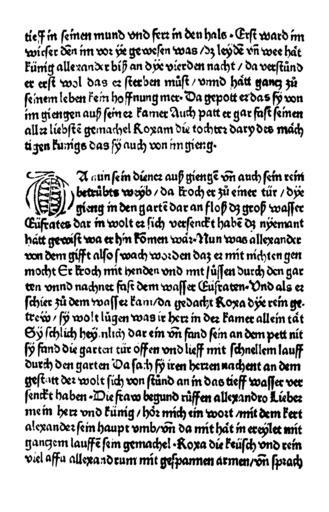 tieff in seinen mund vnd ferr in den hals · Erst ward im
wirser dēn im vor ye gewesen was / dz leydē vn̄ wee hāt
kūnig allexander biß an dye vierden nacht / da verstūnd
er erst wol das er sterben mūst / vnnd hātt gancz zū
seinem leben kein hoffnung mer · Da gepott er das sy von
im giengen auß seiner kamer Auch patt er gar fast seinen
aller liebsten gemachel Roxam die tochter dary des māch
tigen kūnigs das sy auch von im gieng ·
Da nun sein diener auß giengē vn̄ auch sein rein
betrūbts weyb / da kroch er zū einer tūr / dye
gieng in den gartē dar an floß dz groß wasser
Eufrates dar in wolt er sich versenckt habē dz nyemant
hātt gewist wa er hin kōmen wār · Nun was allexander
von dem gifft also swach worden daz er mit nichten gen
mocht Er kroch mit henden vnd mit fūssen durch den gar
ten vnnd nachnet fast dem wasser Eufraten · Vnd als er
schier zū dem wasser kam / da gedacht Roxa dye rein ge
trew / sy wolt lūgen was ir herz in der kamer allein tāt
Sy schlich heymlich dar ein vn̄ fand sein an dem pett nit
sy fand die garten tūr offen vnd lieff mit schnellem lauff
durch den garten Da sach sy iren herren nachent an dem
gestatt der wolt sich von stūnd an in das tieff wasser ver
senckt haben · Die fraw begund rūffen allexandro Lieber
mein herr vnd kūnig / hōr mich ein wort / mit dem kert
alexander sein haupt vmb / vn̄ da mit hāt in ereylet mit
ganczem lauffē sein gemachel · Roxa die keūsch vnd rein
viel affu allexandrum mit gespannen armen / vn̄ sprach